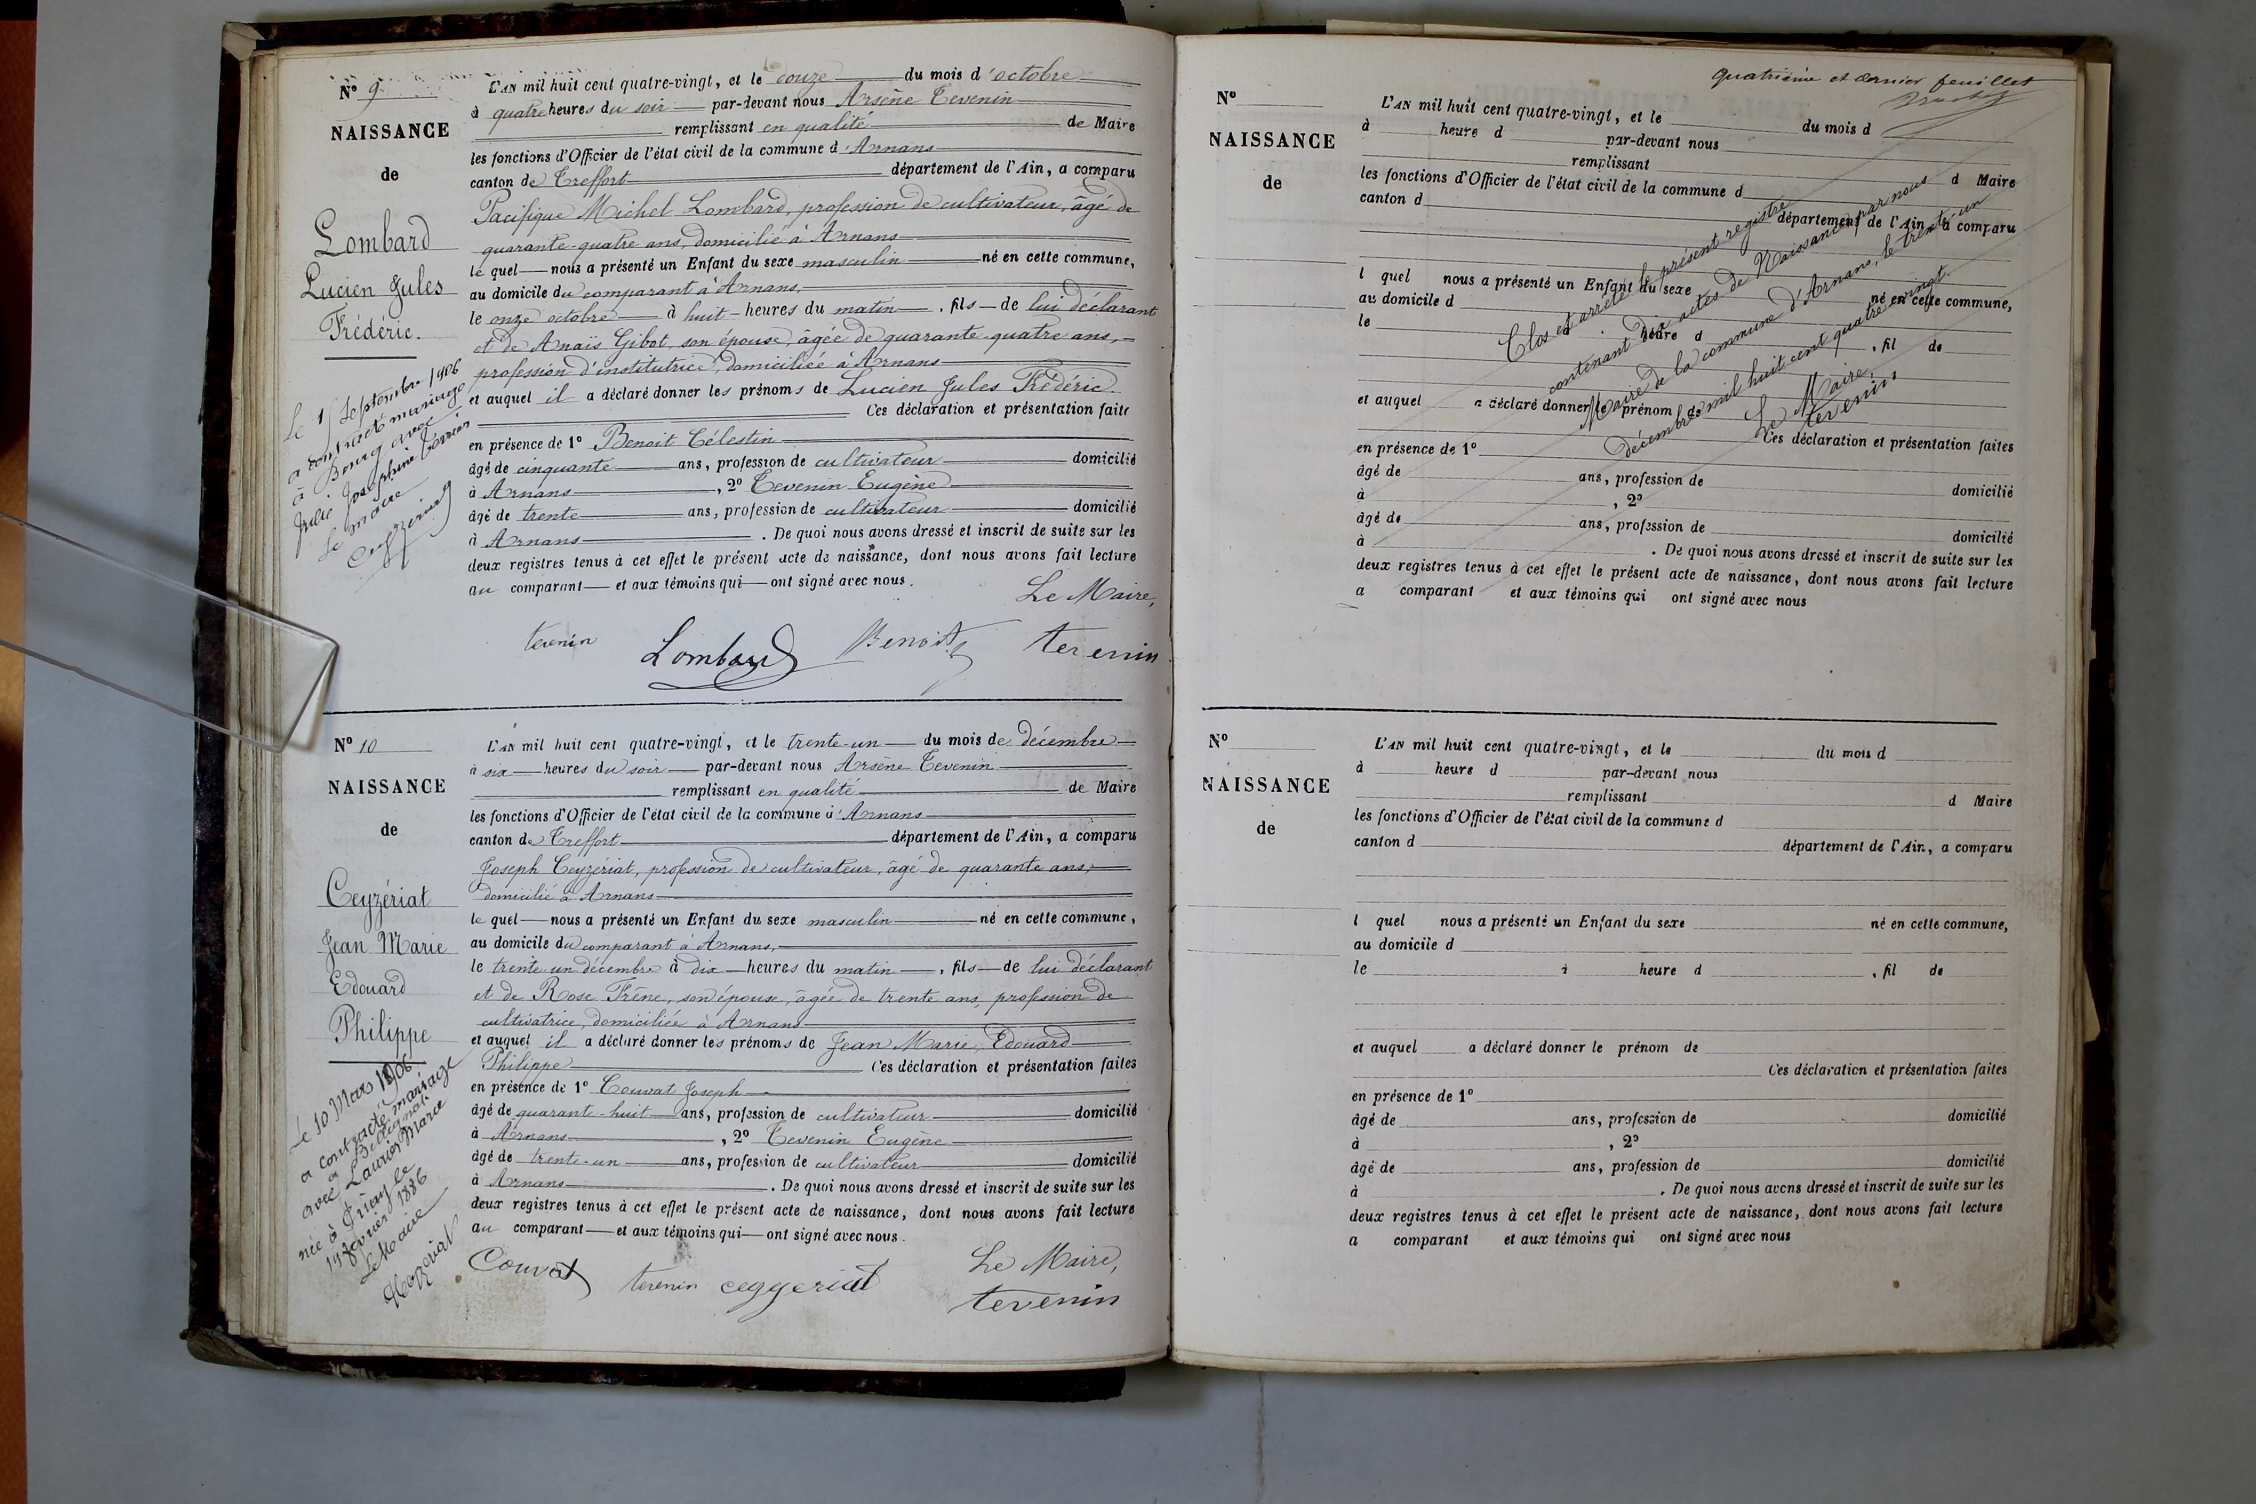 N° 9
NAISSANCE
de
Lombard
Lucien Jules
Frédéric.
Le 15 Septembre 1906
a contracté mariage
à Bourg avec
Julie Joséphine
Le maire
L'AN mil huit cent quatre-vingt, et le onze du mois d'octobre
à quatre heures du soir par-devant nous Arsène Tevenin
remplissant en qualité de Maire
les fonctions d'Officier de l'état civil de la commune d'Arnans
canton de Treffort département de l'Ain, a comparu
Pacifique Michel Lombard, profession de cultivateur, âgé de
quarante-quatre ans, domicilié à Arnans
le quel nous a présenté un Enfant du sexe masculin né en cette commune,
au domicile du comparant à Arnans,
le onze octobre à huit heures du matin, fils de lui déclarant
et de Anaïs Gibot, son épouse, âgée de quarante-quatre ans,
profession d'institutrice, domiciliée à Arnans
et auquel il a déclaré donner les prénoms de Lucien Jules Frédéric.
Ces déclaration et présentation faite
en présence de 1° Benoit Célestin
âgé de cinquante ans, profession de cultivateur domicilié
à Arnans, 2° Tevenin Eugène
âgé de trente ans, profession de cultivateur domicilié
à Arnans. De quoi nous avons dressé et inscrit de suite sur les
deux registres tenus à cet effet le présent acte de naissance, dont nous avons fait lecture
au comparant et aux témoins qui ont signé avec nous.
Le Maire,
tevenin Lombard Benoit tevenin
N° 10
NAISSANCE
de
Ceyzériat
Jean Marie
Edouard
Philippe
Le 10 Mars 1906
a contracté mariage
à
avec Laurion Marie
née à Priay le
19 février 1886
Le Maire
L'AN mil huit cent quatre-vingt, et le trente-un du mois de décembre
à six heures du soir par-devant nous Arsène Tevenin
remplissant en qualité de Maire
les fonctions d'Officier de l'état civil de la commune d'Arnans
canton de Treffort département de l'Ain, a comparu
Joseph Ceyzériat, profession de cultivateur, âgé de quarante ans,
domicilié à Arnans
le quel nous a présenté un Enfant du sexe masculin né en cette commune,
au domicile du comparant à Arnans,
le trente-un décembre à dix heures du matin, fils de lui déclarant
et de Rose Frêne, son épouse, âgée de trente ans, profession de
cultivatrice, domiciliée à Arnans
et auquel il a déclaré donner les prénoms de Jean Marie, Edouard
Philippe Ces déclaration et présentation faites
en présence de 1° Couvat Joseph
âgé de quarante-huit ans, profession de cultivateur domicilié
à Arnans, 2° Tevenin Eugène
âgé de trente-un ans, profession de cultivateur domicilié
à Arnans. De quoi nous avons dressé et inscrit de suite sur les
deux registres tenus à cet effet le présent acte de naissance, dont nous avons fait lecture
au comparant et aux témoins qui ont signé avec nous.
Le Maire,
Couvat tevenin ceyzeriat tevenin
quatrième et dernier feuillet
N°
NAISSANCE
de
L'AN mil huit cent quatre-vingt, et le du mois d
à heure d par-devant nous
remplissant d Maire
les fonctions d'Officier de l'état civil de la commune d
canton d département de l'Ain, a comparu
l quel nous a présenté un Enfant du sexe né en cette commune,
au domicile d
le à heure d , fil de
et auquel a déclaré donner le prénom de
Ces déclaration et présentation faites
en présence de 1°
âgé de ans, profession de domicilié
à , 2°
âgé de ans, profession de domicilié
à . De quoi nous avons dressé et inscrit de suite sur les
deux registres tenus à cet effet le présent acte de naissance, dont nous avons fait lecture
a comparant et aux témoins qui ont signé avec nous
Clos et arrêté le présent registre
contenant dix actes de Naissances, par nous
Maire de la commune d'Arnans, le trente-un
décembre mil huit cent quatre-vingt.
Le Maire,
tevenin
N°
NAISSANCE
de
L'AN mil huit cent quatre-vingt, et le du mois d
à heure d par-devant nous
remplissant d Maire
les fonctions d'Officier de l'état civil de la commune d
canton d département de l'Ain, a comparu
l quel nous a présenté un Enfant du sexe né en cette commune,
au domicile d
le à heure d , fil de
et auquel a déclaré donner le prénom de
Ces déclaration et présentation faites
en présence de 1°
âgé de ans, profession de domicilié
à , 2°
âgé de ans, profession de domicilié
à . De quoi nous avons dressé et inscrit de suite sur les
deux registres tenus à cet effet le présent acte de naissance, dont nous avons fait lecture
a comparant et aux témoins qui ont signé avec nous